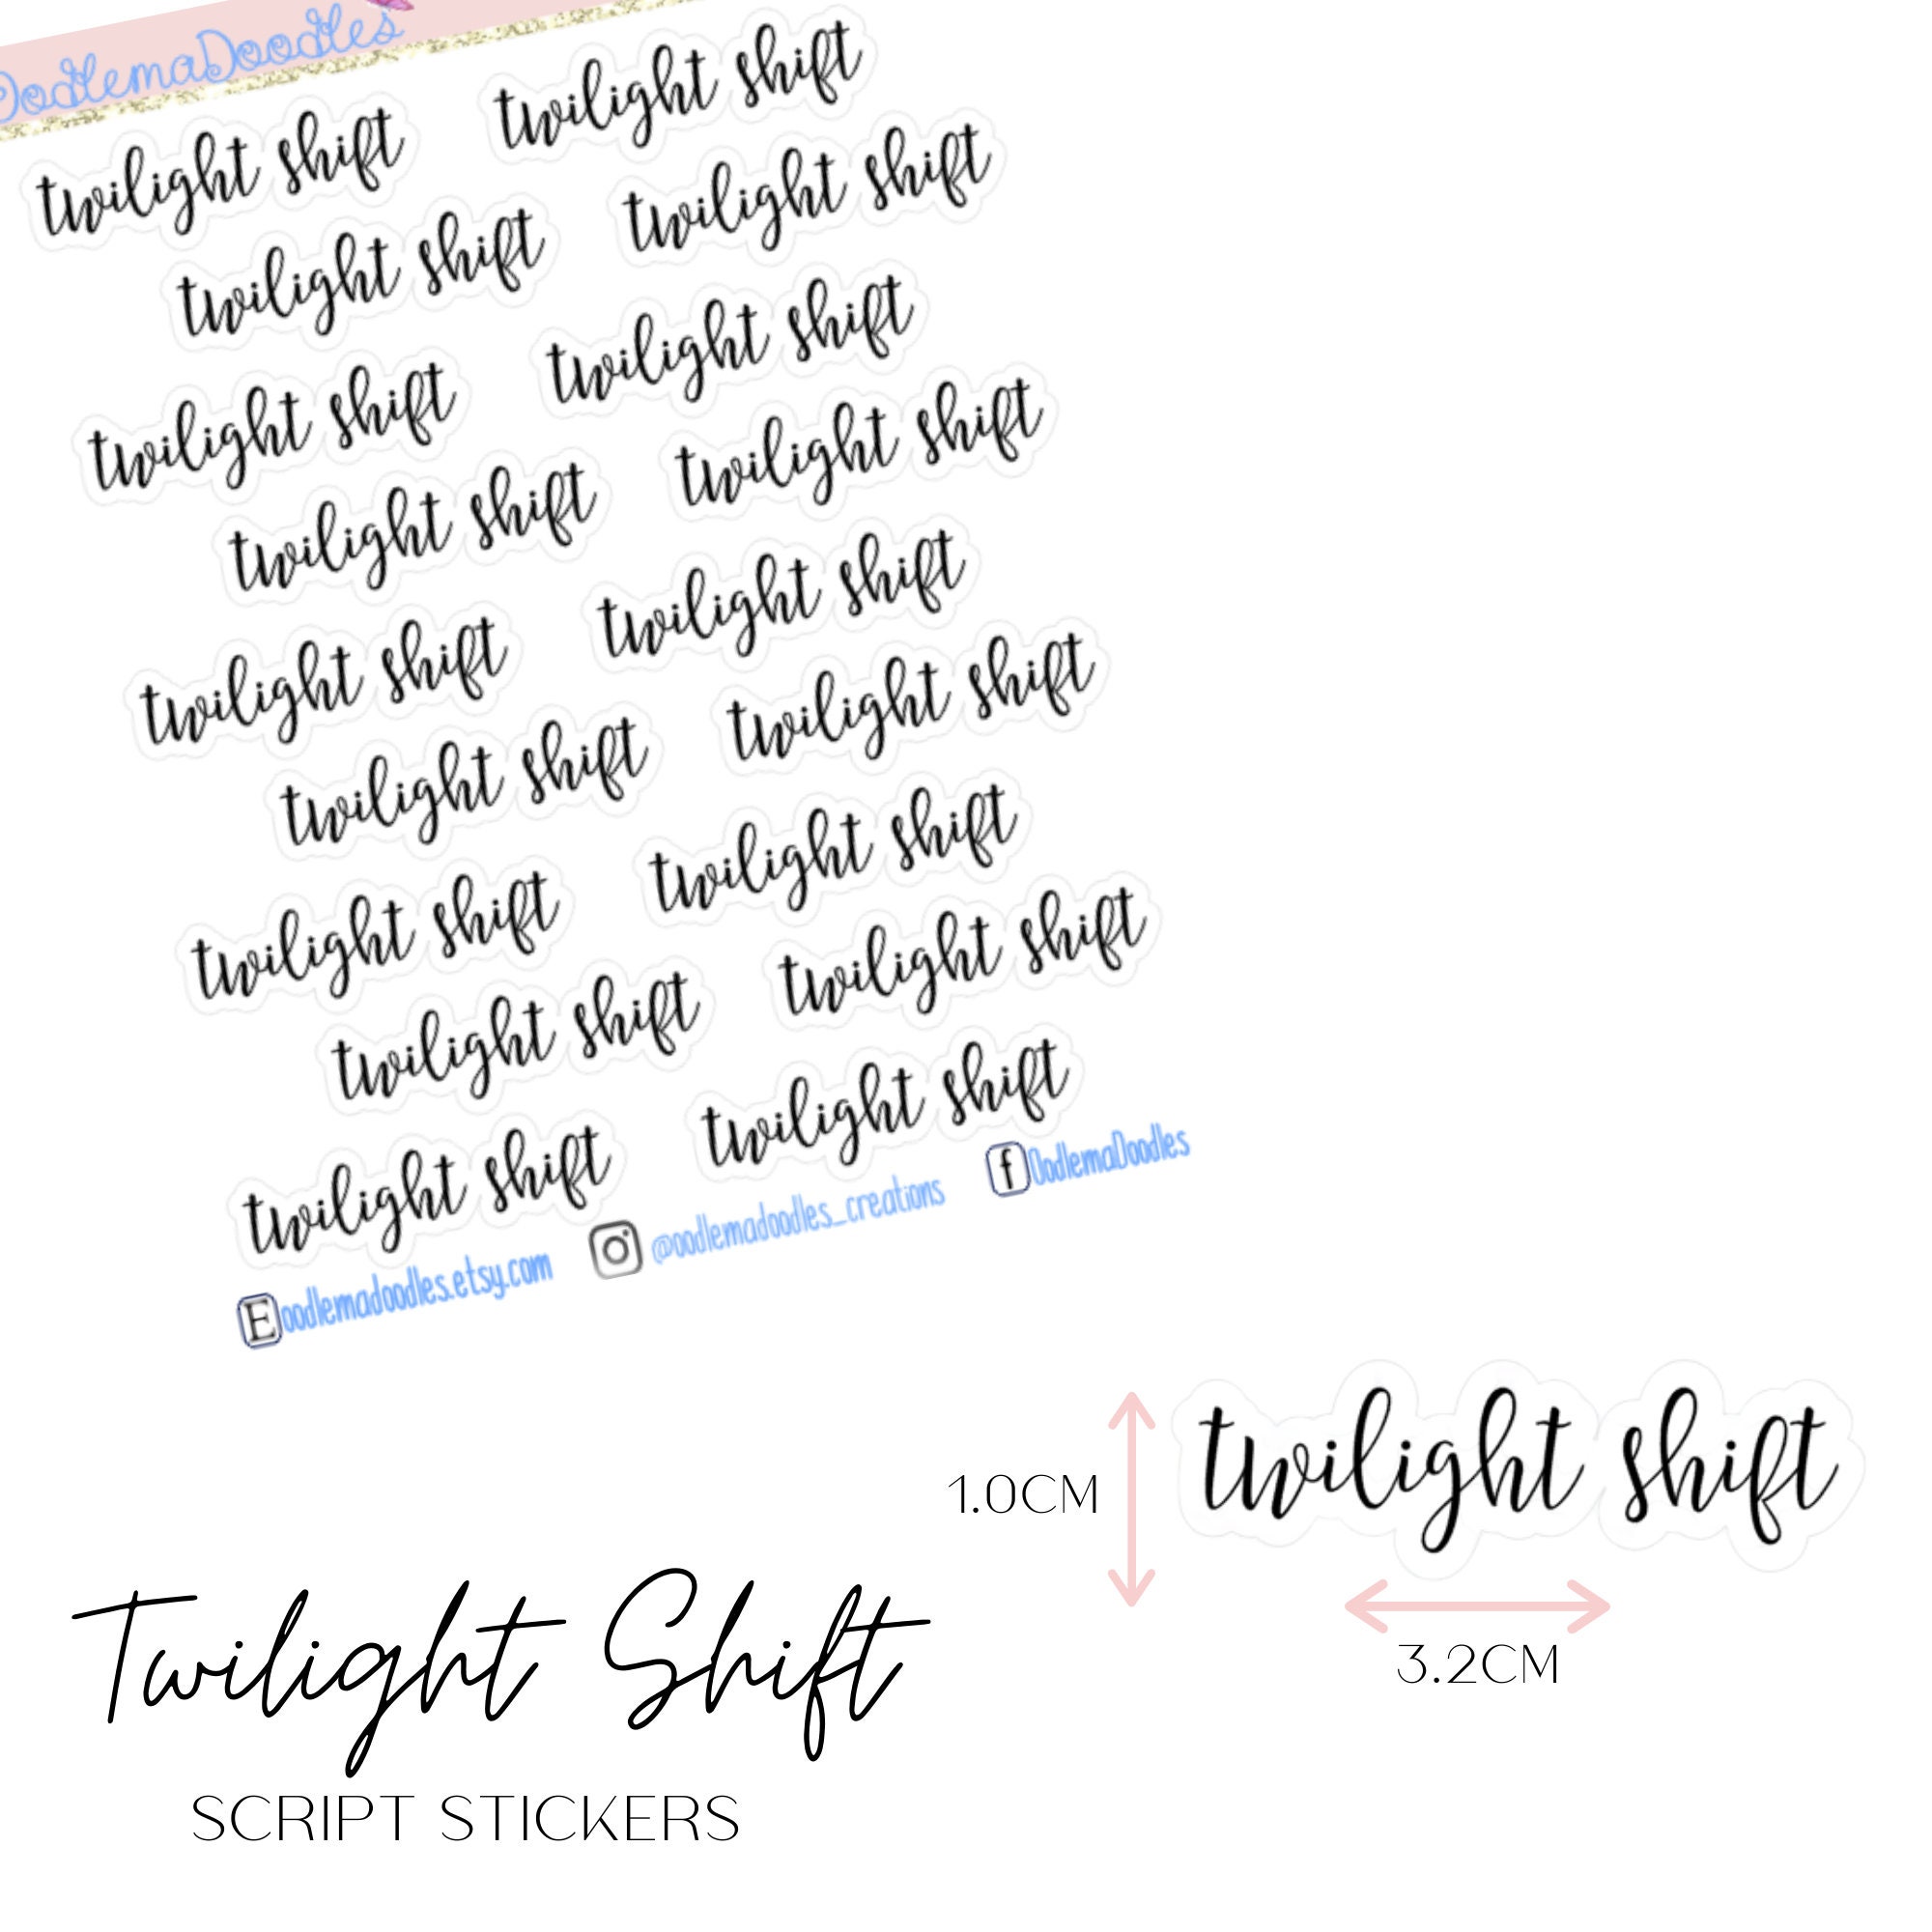 OodlemaDoodles
twilight shift twilight shift
twilight shift twilight shift
twilight shift twilight shift
twilight shift twilight shift
twilight shift twilight shift
twilight shift twilight shift
twilight shift twilight shift
twilight shift twilight shift
twilight shift twilight shift
E oodlemadoodles.etsy.com @oodlemadoodles_creations f OodlemaDoodles
twilight shift
1.0CM
3.2CM
Twilight Shift
SCRIPT STICKERS